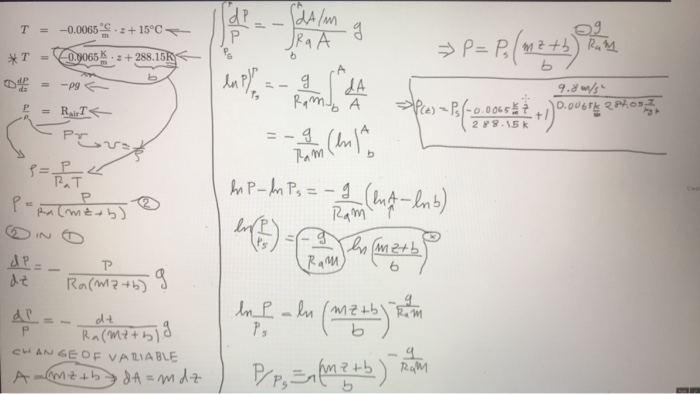 T = −0.0065 °C/m · z + 15°C
* T = −0.0065 K/m · z + 288.15K
b
① dP/dz = −ρg
P/ρ = R_air T
Pv = v = 1/ρ
ρ = P/(R_a T)
ρ = P/(R_a(mz+b)) ②
② IN ①
dP/dz = − P/(R_a(mz+b)) g
dP/P = − dz/(R_a(mz+b)) g
CHANGE OF VARIABLE
A = mz+b → dA = m dz
∫_{P_s}^{P} dP/P = − ∫_b^A (dA/m)/(R_a A) g
ln P)_{P_s}^{P} = − g/(R_a m) ∫_b^A dA/A
= − g/(R_a m) (ln)_b^A
ln P − ln P_s = − g/(R_a m) (ln A − ln b)
ln(P/P_s) = − g/(R_a m) ln((mz+b)/b)
ln P/P_s = ln((mz+b)/b)^{−g/(R_a m)}
P/P_s = ((mz+b)/b)^{−g/(R_a m)}
⇒ P = P_s((mz+b)/b)^{−g/(R_a m)}
⇒ P(z) = P_s((−0.0065 K/m z)/(288.15K) + 1)^{9.8 m/s²/(0.0065 K/m 287.05 J/kgK)}